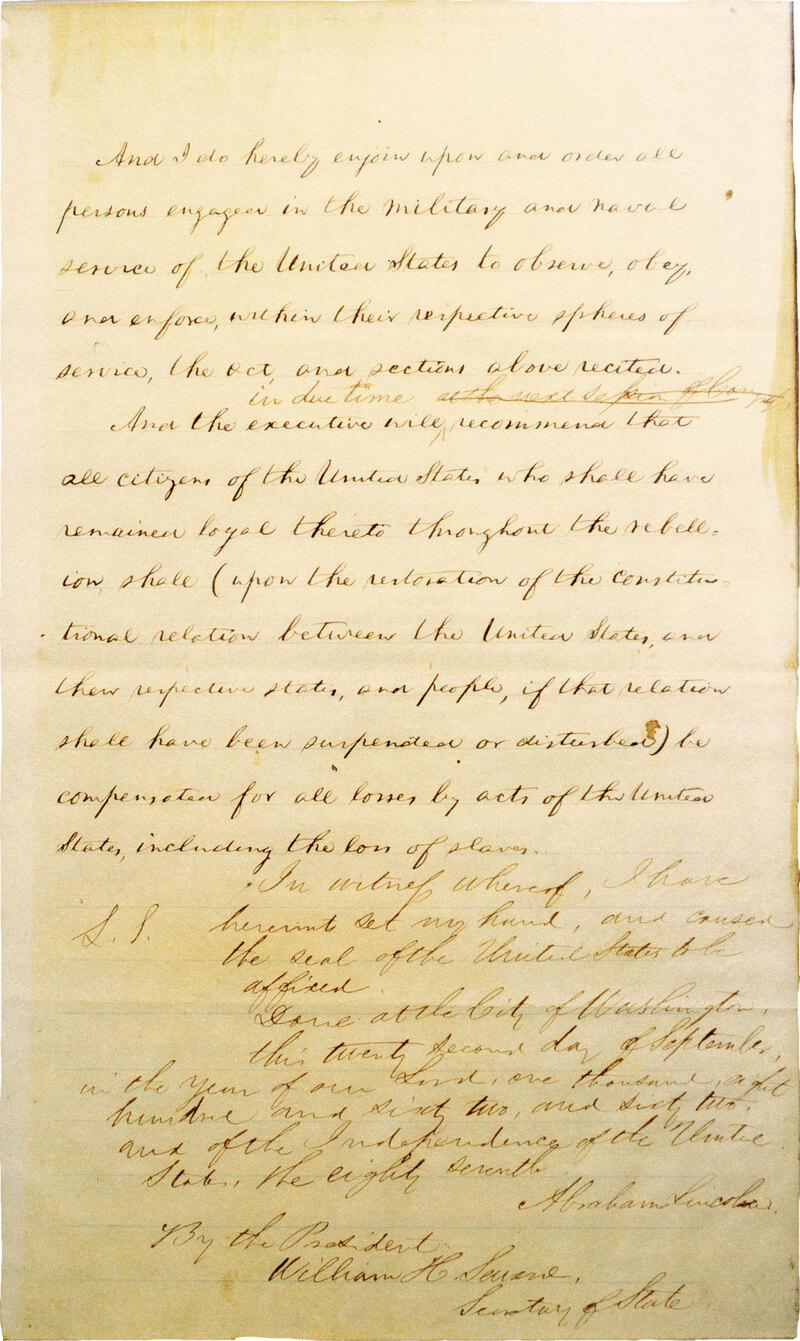 And I do hereby enjoin upon and order all
persons engaged in the military and naval
service of the United States to observe, obey,
and enforce, within their respective spheres of
service, the act, and sections above recited.
in due time at the next session of Congress,
And the executive will recommend that
all citizens of the United States who shall have
remained loyal thereto throughout the rebell=
ion, shall (upon the restoration of the constitu=
tional relation between the United States, and
their respective states, and people, if that relation
shall have been suspended or disturbed) be
compensated for all losses by acts of the United
States, including the loss of slaves.
In witness whereof, I have
L. S. hereunto set my hand, and caused
the seal of the United States to be
affixed.
Done at the City of Washington,
this twenty second day of September,
in the year of our Lord, one thousand, eight
hundred and sixty two, and sixty two,
and of the Independence of the United
States, the eighty seventh.
Abraham Lincoln.
By the President
William H. Seward,
Secretary of State